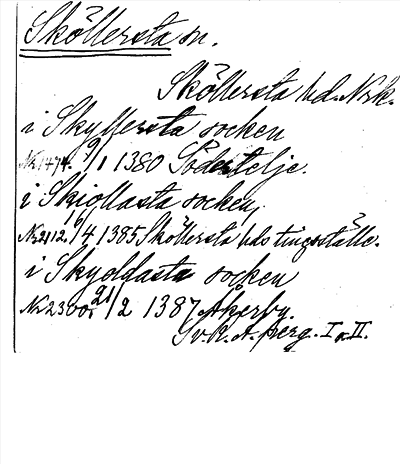 Sköllersta sn.
Sköllersta hd. Nrk.
i Skyllersta socken
Nr 1474. 9/1 1380 Södertelje.
i Skiollasta socken,
Nr 2112. 16/4 1385 Sköllersta hds tingsställe.
i Skyddasta socken
Nr 2300. 21/2 1387 Åkerby.
Sv. R. A. perg. I o. II.